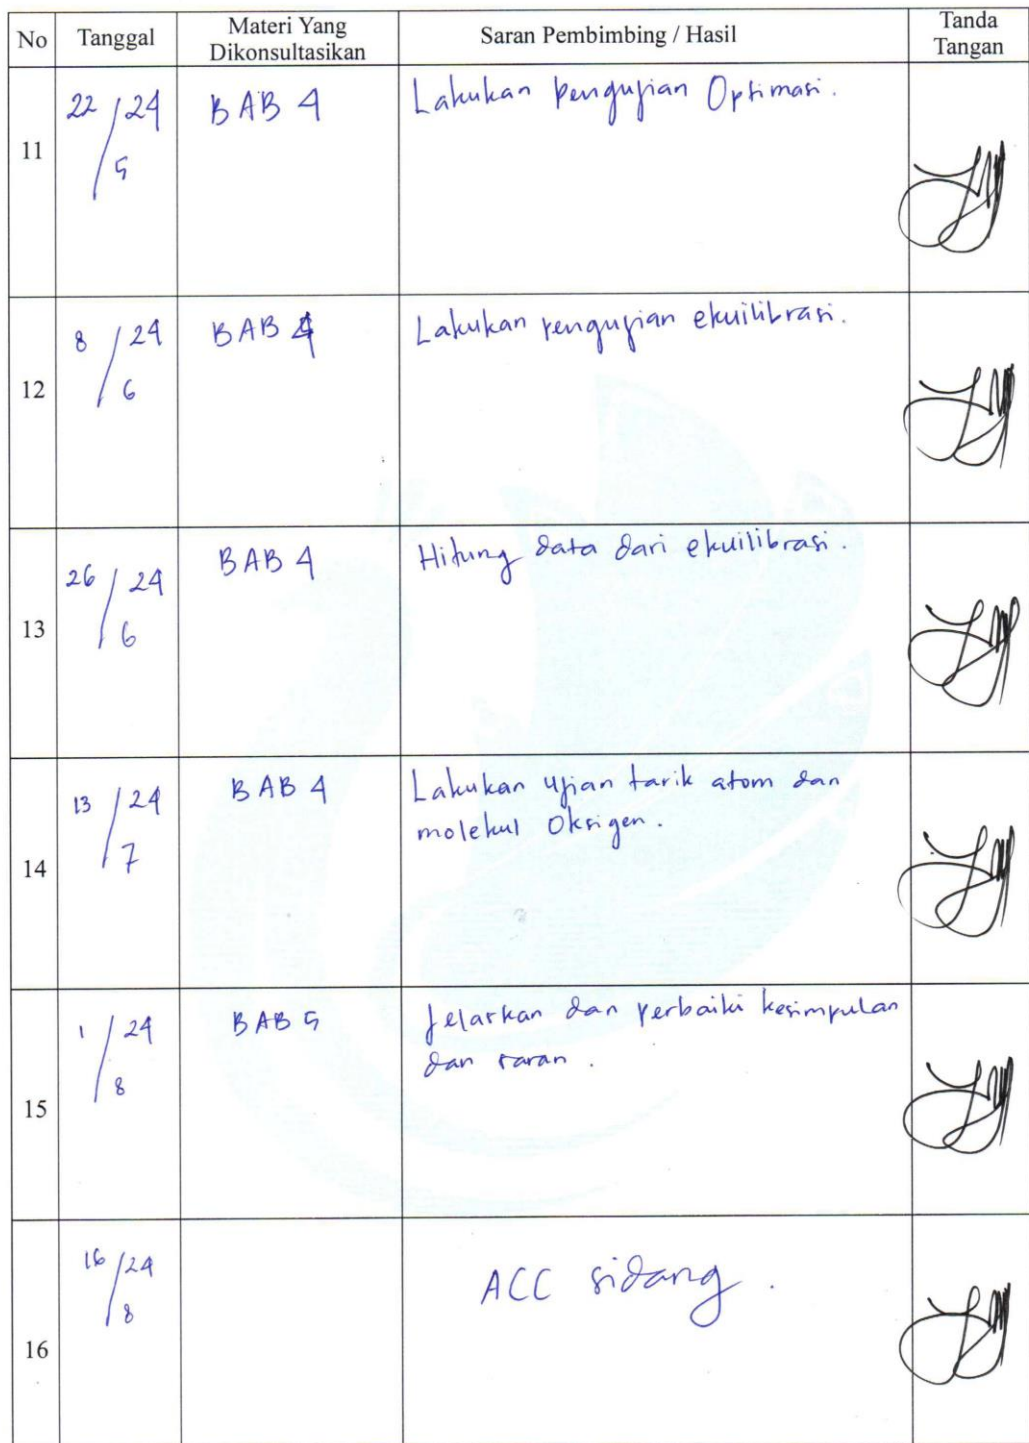 No Tanggal Materi Yang Dikonsultasikan Saran Pembimbing / Hasil Tanda Tangan
11 22/5 24 BAB 4 Lakukan pengujian Optimasi.
12 8/6 24 BAB 4 Lakukan pengujian ekuilibrasi.
13 26/6 24 BAB 4 Hitung data dari ekuilibrasi.
14 13/7 24 BAB 4 Lakukan ujian tarik atom dan
molekul Oksigen.
15 1/8 24 BAB 5 Jelaskan dan perbaiki kesimpulan
dan saran.
16 16/8 24 ACC sidang.